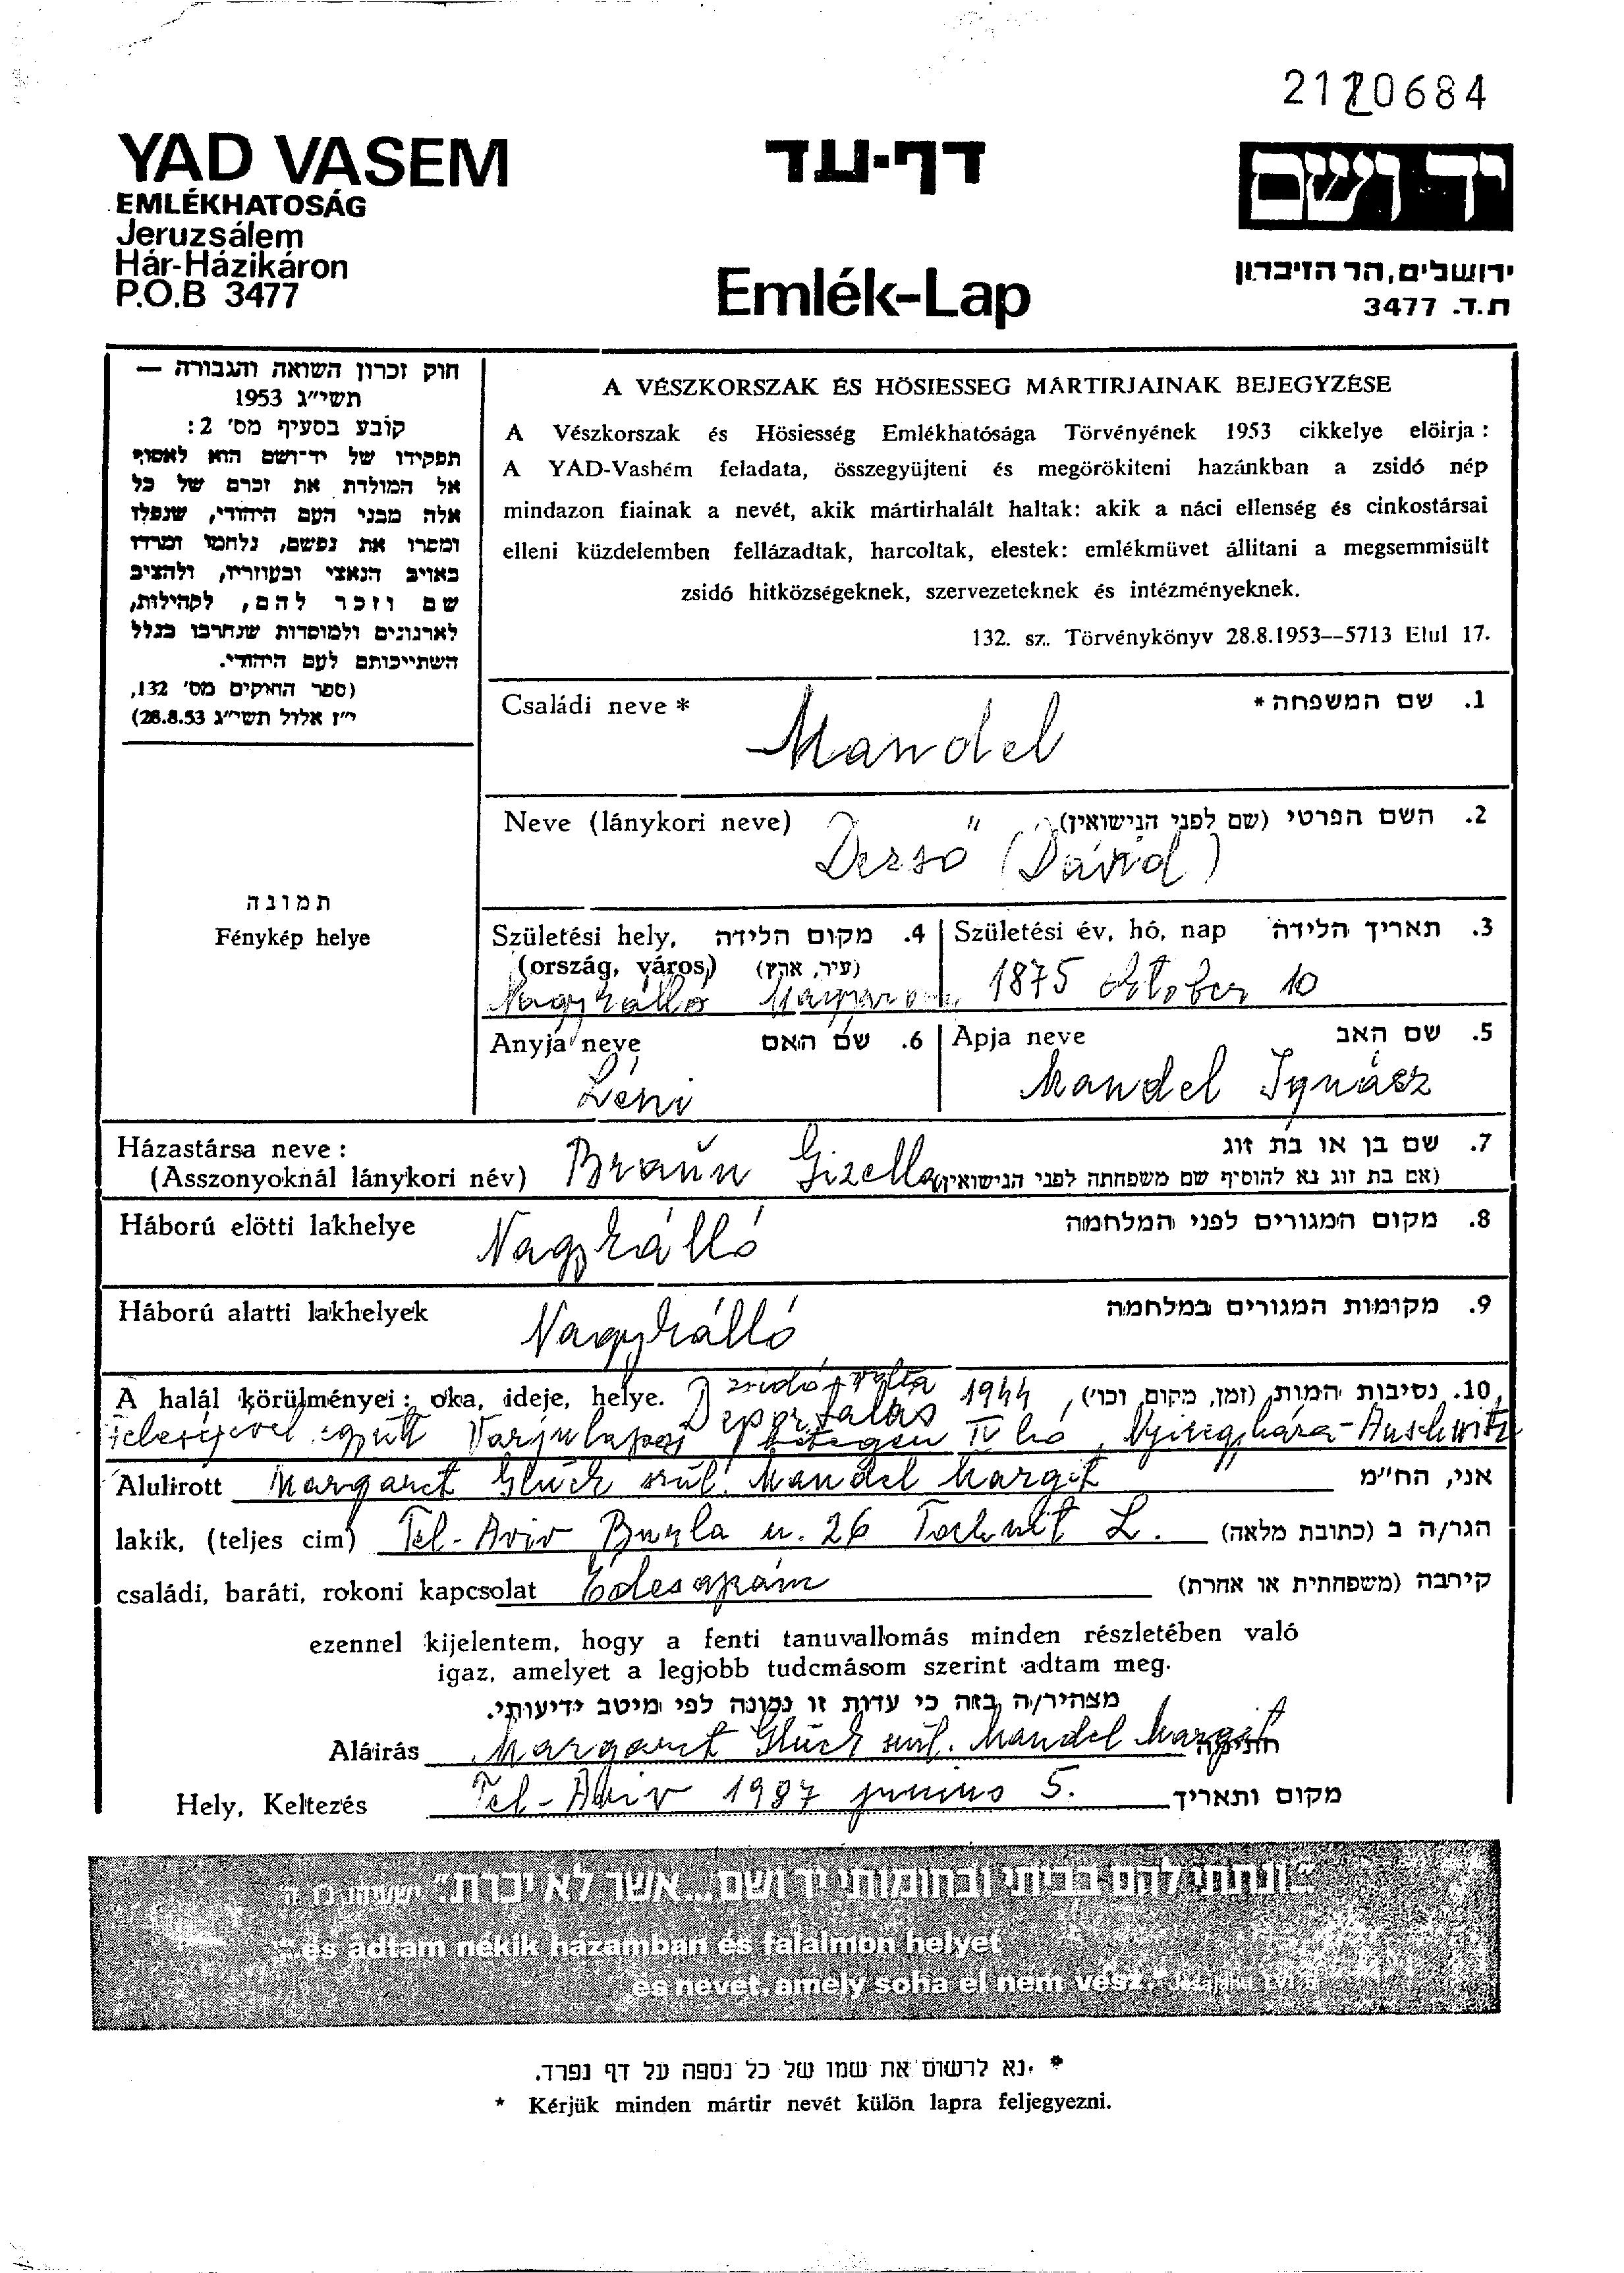 2120684
YAD VASEM
EMLÉKHATOSÁG
Jeruzsálem
Hár-Házikáron
P.O.B 3477
דף-עד
Emlék-Lap
יד ושם
ירושלים, הר הזיכרון
ת.ד. 3477
חוק זכרון השואה והגבורה —
תשי״ג 1953
קובע בסעיף מס׳ 2:
תפקידו של יד־ושם הוא לאסוף
אל המולדת את זכרם של כל
אלה מבני העם היהודי, שנפלו
ומסרו את נפשם, נלחמו ומרדו
באויב הנאצי ובעוזריו, ולהציב
שם וזכר להם, לקהילות,
לארגונים ולמוסדות שנחרבו בגלל
השתייכותם לעם היהודי.
(ספר החוקים מס׳ 132,
י״ז אלול תשי״ג 28.8.53)
תמונה
Fénykép helye
A VÉSZKORSZAK ÉS HÖSIESSEG MÁRTIRJAINAK BEJEGYZÉSE
A Vészkorszak és Hösiesség Emlékhatósága Törvényének 1953 cikkelye elöirja :
A YAD-Vashém feladata, összegyüjteni és megörökiteni hazánkban a zsidó nép
mindazon fiainak a nevét, akik mártirhalált haltak: akik a náci ellenség és cinkostársai
elleni küzdelemben fellázadtak, harcoltak, elestek: emlékmüvet állitani a megsemmisült
zsidó hitközségeknek, szervezeteknek és intézményeknek.
132. sz. Törvénykönyv 28.8.1953--5713 Elul 17.
Családi neve * Mandel 1. שם המשפחה *
Neve (lánykori neve) 2. השם הפרטי (שם לפני הנישואין)
Dezső (Dávid)
Születési hely, 4. מקום הלידה
(ország, város) (עיר, ארץ)
Nagykálló
Születési év, hó, nap 3. תאריך הלידה
1875 október 10
Anyja neve 6. שם האם
Léni
Apja neve 5. שם האב
Mandel Ignász
Házastársa neve : 7. שם בן או בת זוג
(Asszonyoknál lánykori név) Braun Gizella (אם בת זוג נא להוסיף שם משפחתה לפני הנישואין)
Háború elötti lakhelye Nagykálló 8. מקום המגורים לפני המלחמה
Háború alatti lakhelyek Nagykálló 9. מקומות המגורים במלחמה
A halál körülményei : oka, ideje, helye. Deportálás 1944 10. נסיבות המות, (זמן, מקום, וכו׳)
feleségével együtt IV hó, Nyíregyháza - Auschwitz
Alulirott Margaret Glück szül. Mandel Margit אני, הח״מ
lakik, (teljes cim) Tel-Aviv Burla u. 26 Tochnit L. הגר/ה ב (כתובת מלאה)
családi, baráti, rokoni kapcsolat Édesapám קירבה (משפחתית או אחרת)
ezennel kijelentem, hogy a fenti tanuvallomás minden részletében való
igaz, amelyet a legjobb tudcmásom szerint adtam meg.
מצהיר/ה בזה כי עדות זו נכונה לפי מיטב ידיעותי.
Aláirás Margaret Glück szül. Mandel Margit חתימה
Hely, Keltezés Tel-Aviv 1987 junius 5. מקום ותאריך
"ונתתי להם בביתי ובחומותי יד ושם... אשר לא יכרת." ישעיהו נו ה
"...és adtam nékik házamban és falaimon helyet
és nevet, amely soha el nem vész."
* נא לרשום את שמו של כל נספה על דף נפרד.
* Kérjük minden mártir nevét külön lapra feljegyezni.